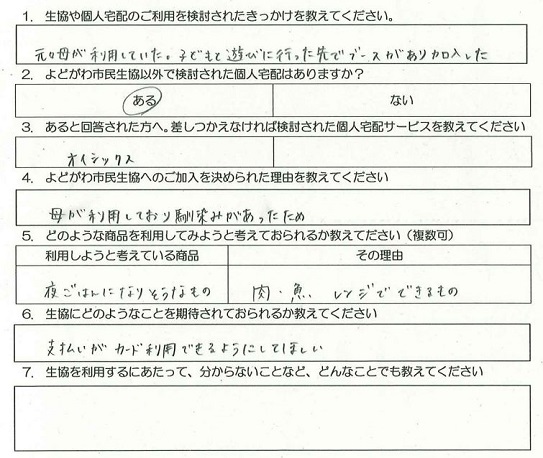 1. 生協や個人宅配のご利用を検討されたきっかけを教えてください。
元々母が利用していた。子どもと遊びに行った先でブースがあり加入した
2. よどがわ市民生協以外で検討された個人宅配はありますか？
ある ない
3. あると回答された方へ。差しつかえなければ検討された個人宅配サービスを教えてください
オイシックス
4. よどがわ市民生協へのご加入を決められた理由を教えてください
母が利用しており馴染みがあったため
5. どのような商品を利用してみようと考えておられるか教えてださい（複数可）
利用しようと考えている商品 その理由
夜ごはんになりそうなもの 肉・魚 レンジでできるもの
6. 生協にどのようなことを期待されておられるか教えてください
支払いがカード利用できるようにしてほしい
7. 生協を利用するにあたって、分からないことなど、どんなことでも教えてください